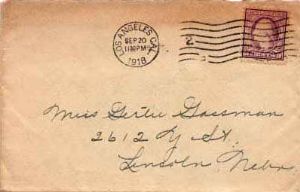 LOS ANGELES CAL.
SEP 20
1130 PM
1918
2
Miss Gertie Gassman
2612 Y St.
Lincoln Nebr.